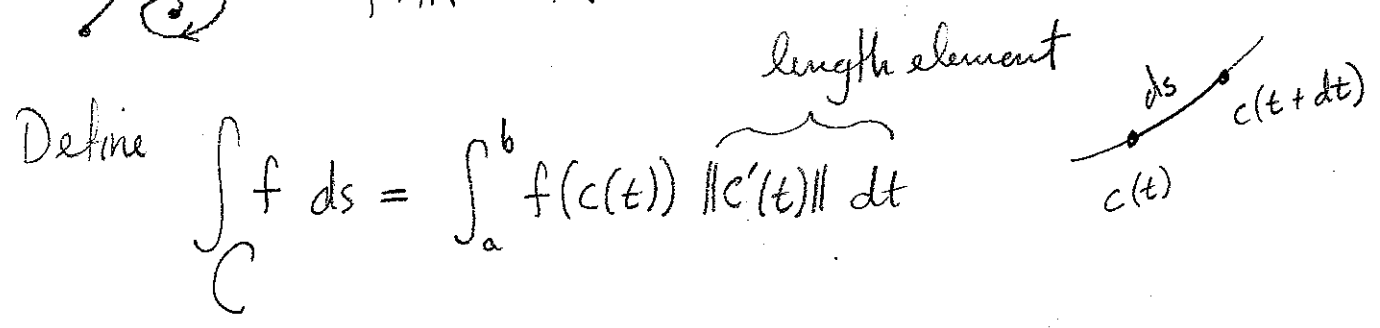 length element
Define ∫_C f ds = ∫_a^b f(c(t)) ||c′(t)|| dt
ds
c(t+dt)
c(t)